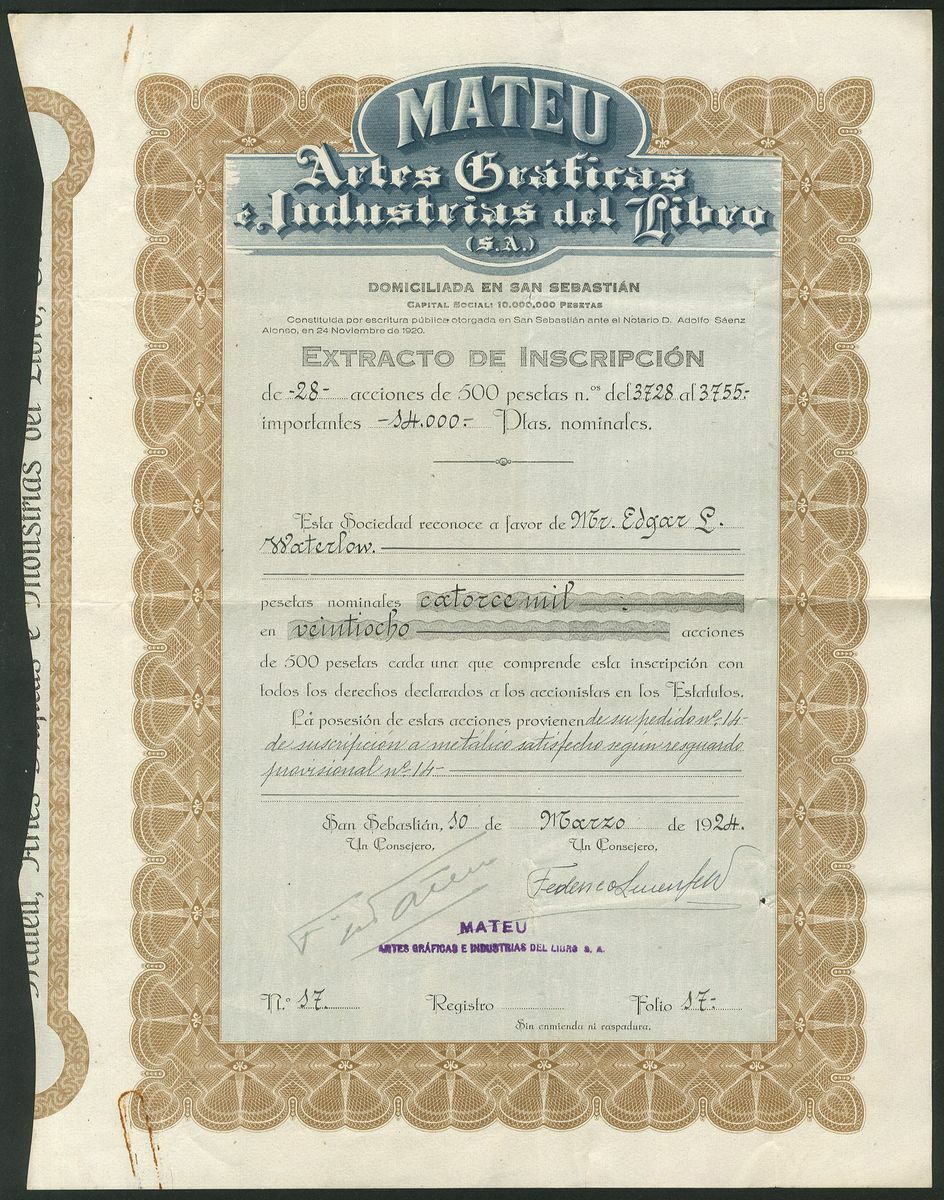 MATEU
Artes Gráficas
é Industrias del Libro
(S.A.)
DOMICILIADA EN SAN SEBASTIÁN
CAPITAL SOCIAL: 10.000,000 PESETAS
Constituída por escritura pública otorgada en San Sebastián ante el Notario D. Adolfo Sáenz
Alonso, en 24 Noviembre de 1920.
EXTRACTO DE INSCRIPCIÓN
de -28- acciones de 500 pesetas n.os del 3.728 al 3.755.-
importantes -14.000.- Ptas. nominales.
Esta Sociedad reconoce a favor de Mr. Edgar L.
Waterlow.
pesetas nominales catorce mil
en veintiocho acciones
de 500 pesetas cada una que comprende esta inscripción con
todos los derechos declarados a los accionistas en los Estatutos.
La posesión de estas acciones provienen de su pedido nº. 14-
de suscripcion a metálico satisfecho según resguardo
provisional nº. 14-
San Sebastián, 10 de Marzo de 1924.
Un Consejero, Un Consejero,
Federico
MATEU
ARTES GRÁFICAS E INDUSTRIAS DEL LIBRO S. A.
N.º 17. Registro Folio 17.-
Sin enmienda ni raspadura.
Mateu, Artes Gráficas e Industrias del Libro, S.